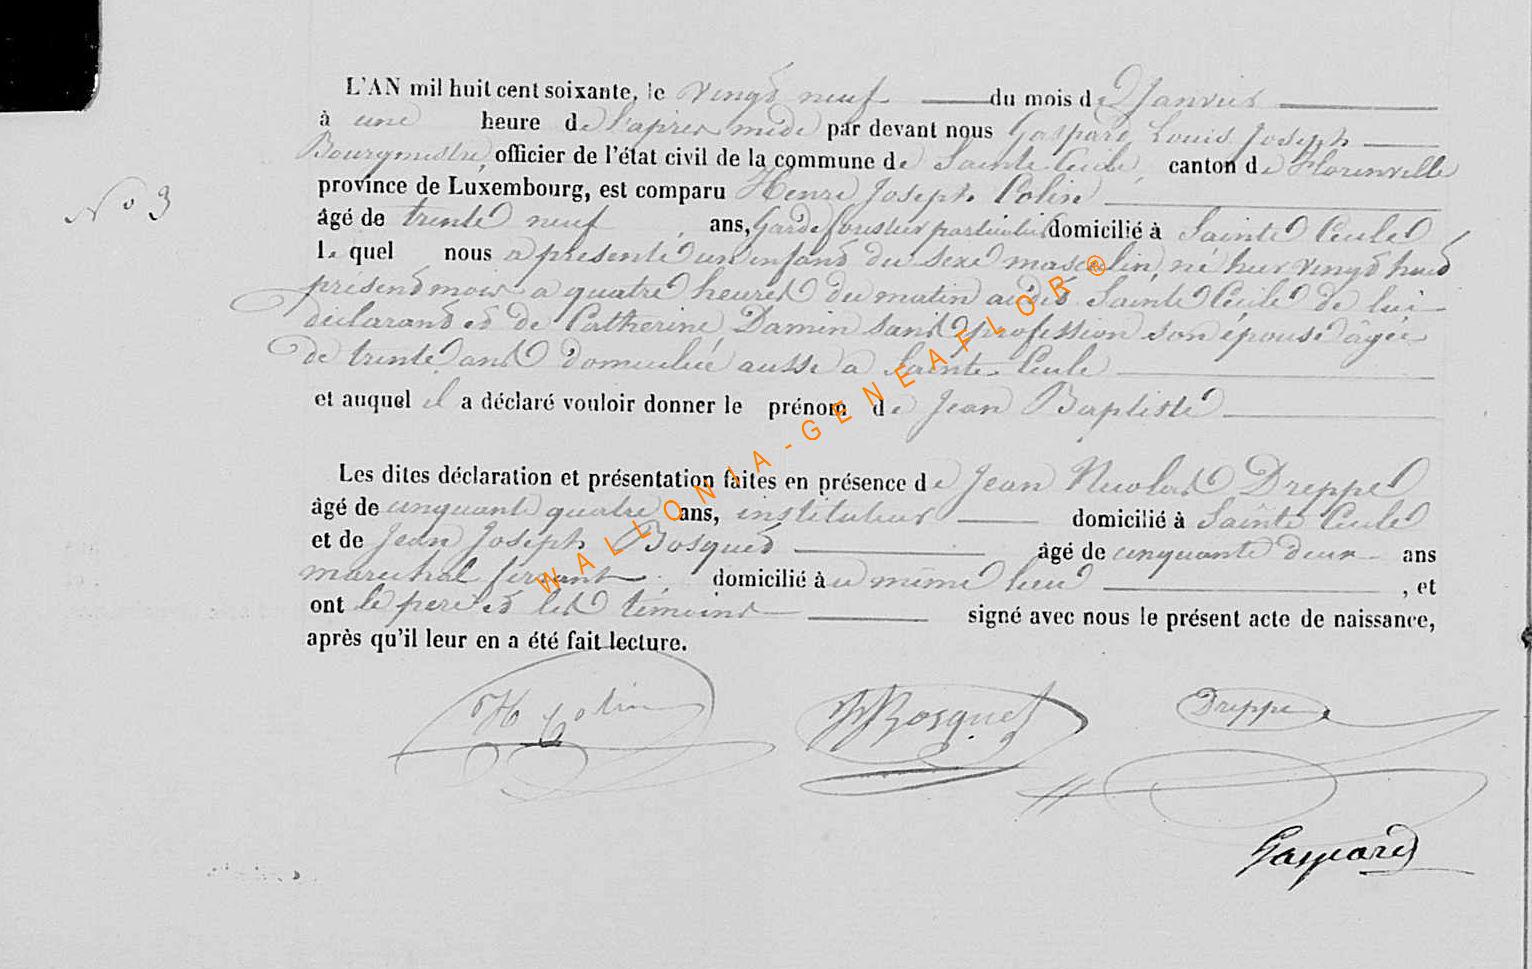 L'AN mil huit cent soixante, le vingt neuf du mois de Janvier
à une heure de l'après midi par devant nous Gaspard Louis Joseph
Bourgmestre, officier de l'état civil de la commune de Sainte Cécile, canton de Florenville
province de Luxembourg, est comparu Henri Joseph Colin
N° 3
âgé de trente neuf ans, Garde forestier particulier domicilié à Sainte Cécile
le quel nous a présenté un enfant du sexe masculin, né hier vingt huit
présent mois a quatre heures du matin au dit Sainte Cécile de lui
déclarant et de Catherine Damin sans profession son épouse âgée
de trente ans domiciliée aussi a Sainte Cécile
et auquel il a déclaré vouloir donner le prénom de Jean Baptiste
Les dites déclaration et présentation faites en présence de Jean Nicolas Dreppe
âgé de cinquante quatre ans, instituteur domicilié à Sainte Cécile
et de Jean Joseph Bosquet âgé de cinquante deux ans
marechal ferrant domicilié à u même lieu , et
ont le père et les témoins signé avec nous le présent acte de naissance,
après qu'il leur en a été fait lecture.
H Colin JJBosquet Dreppe
Gaspard
WALLONIA-GENEAFLOR®